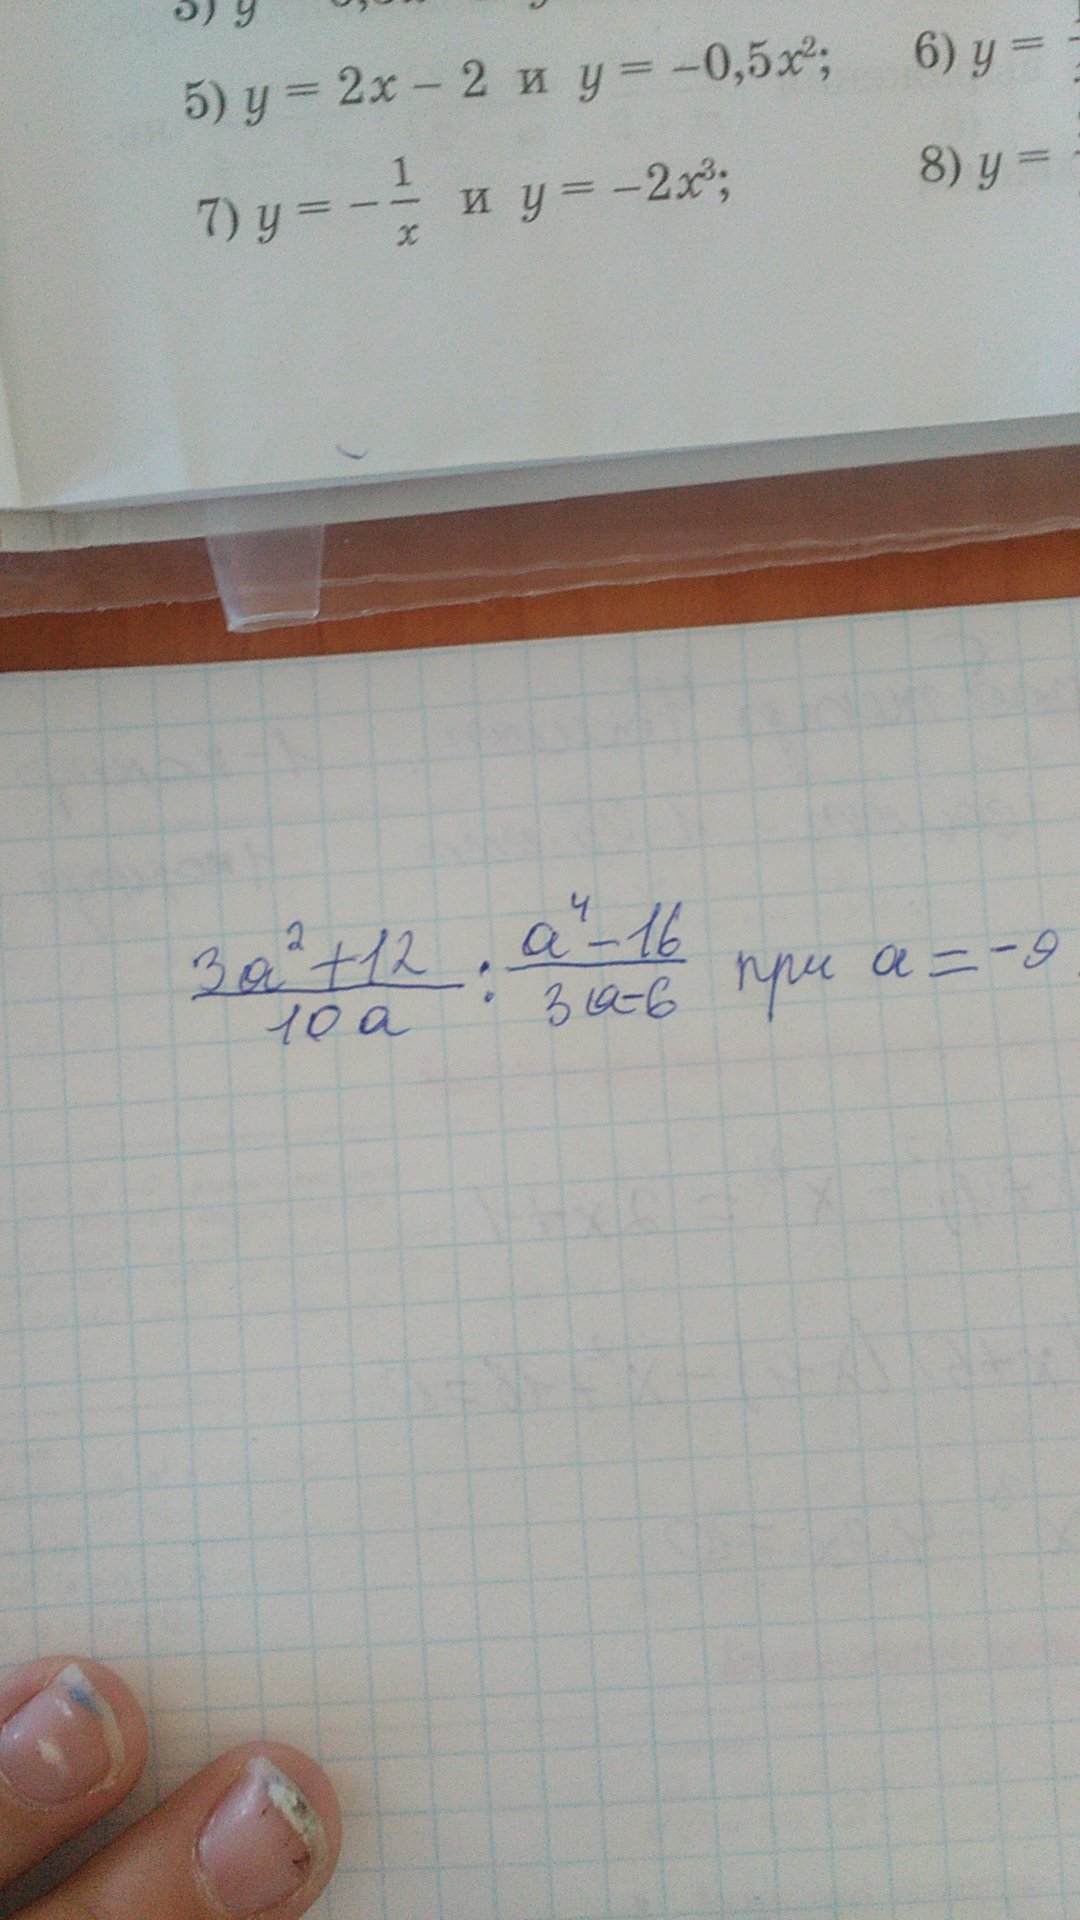 3) y
5) y = 2x – 2 и y = –0,5x²; 6) y =
7) y = –1/x и y = –2x³; 8) y =
(3a² + 12)/(10a) : (a⁴ – 16)/(3a – 6) при a = –9